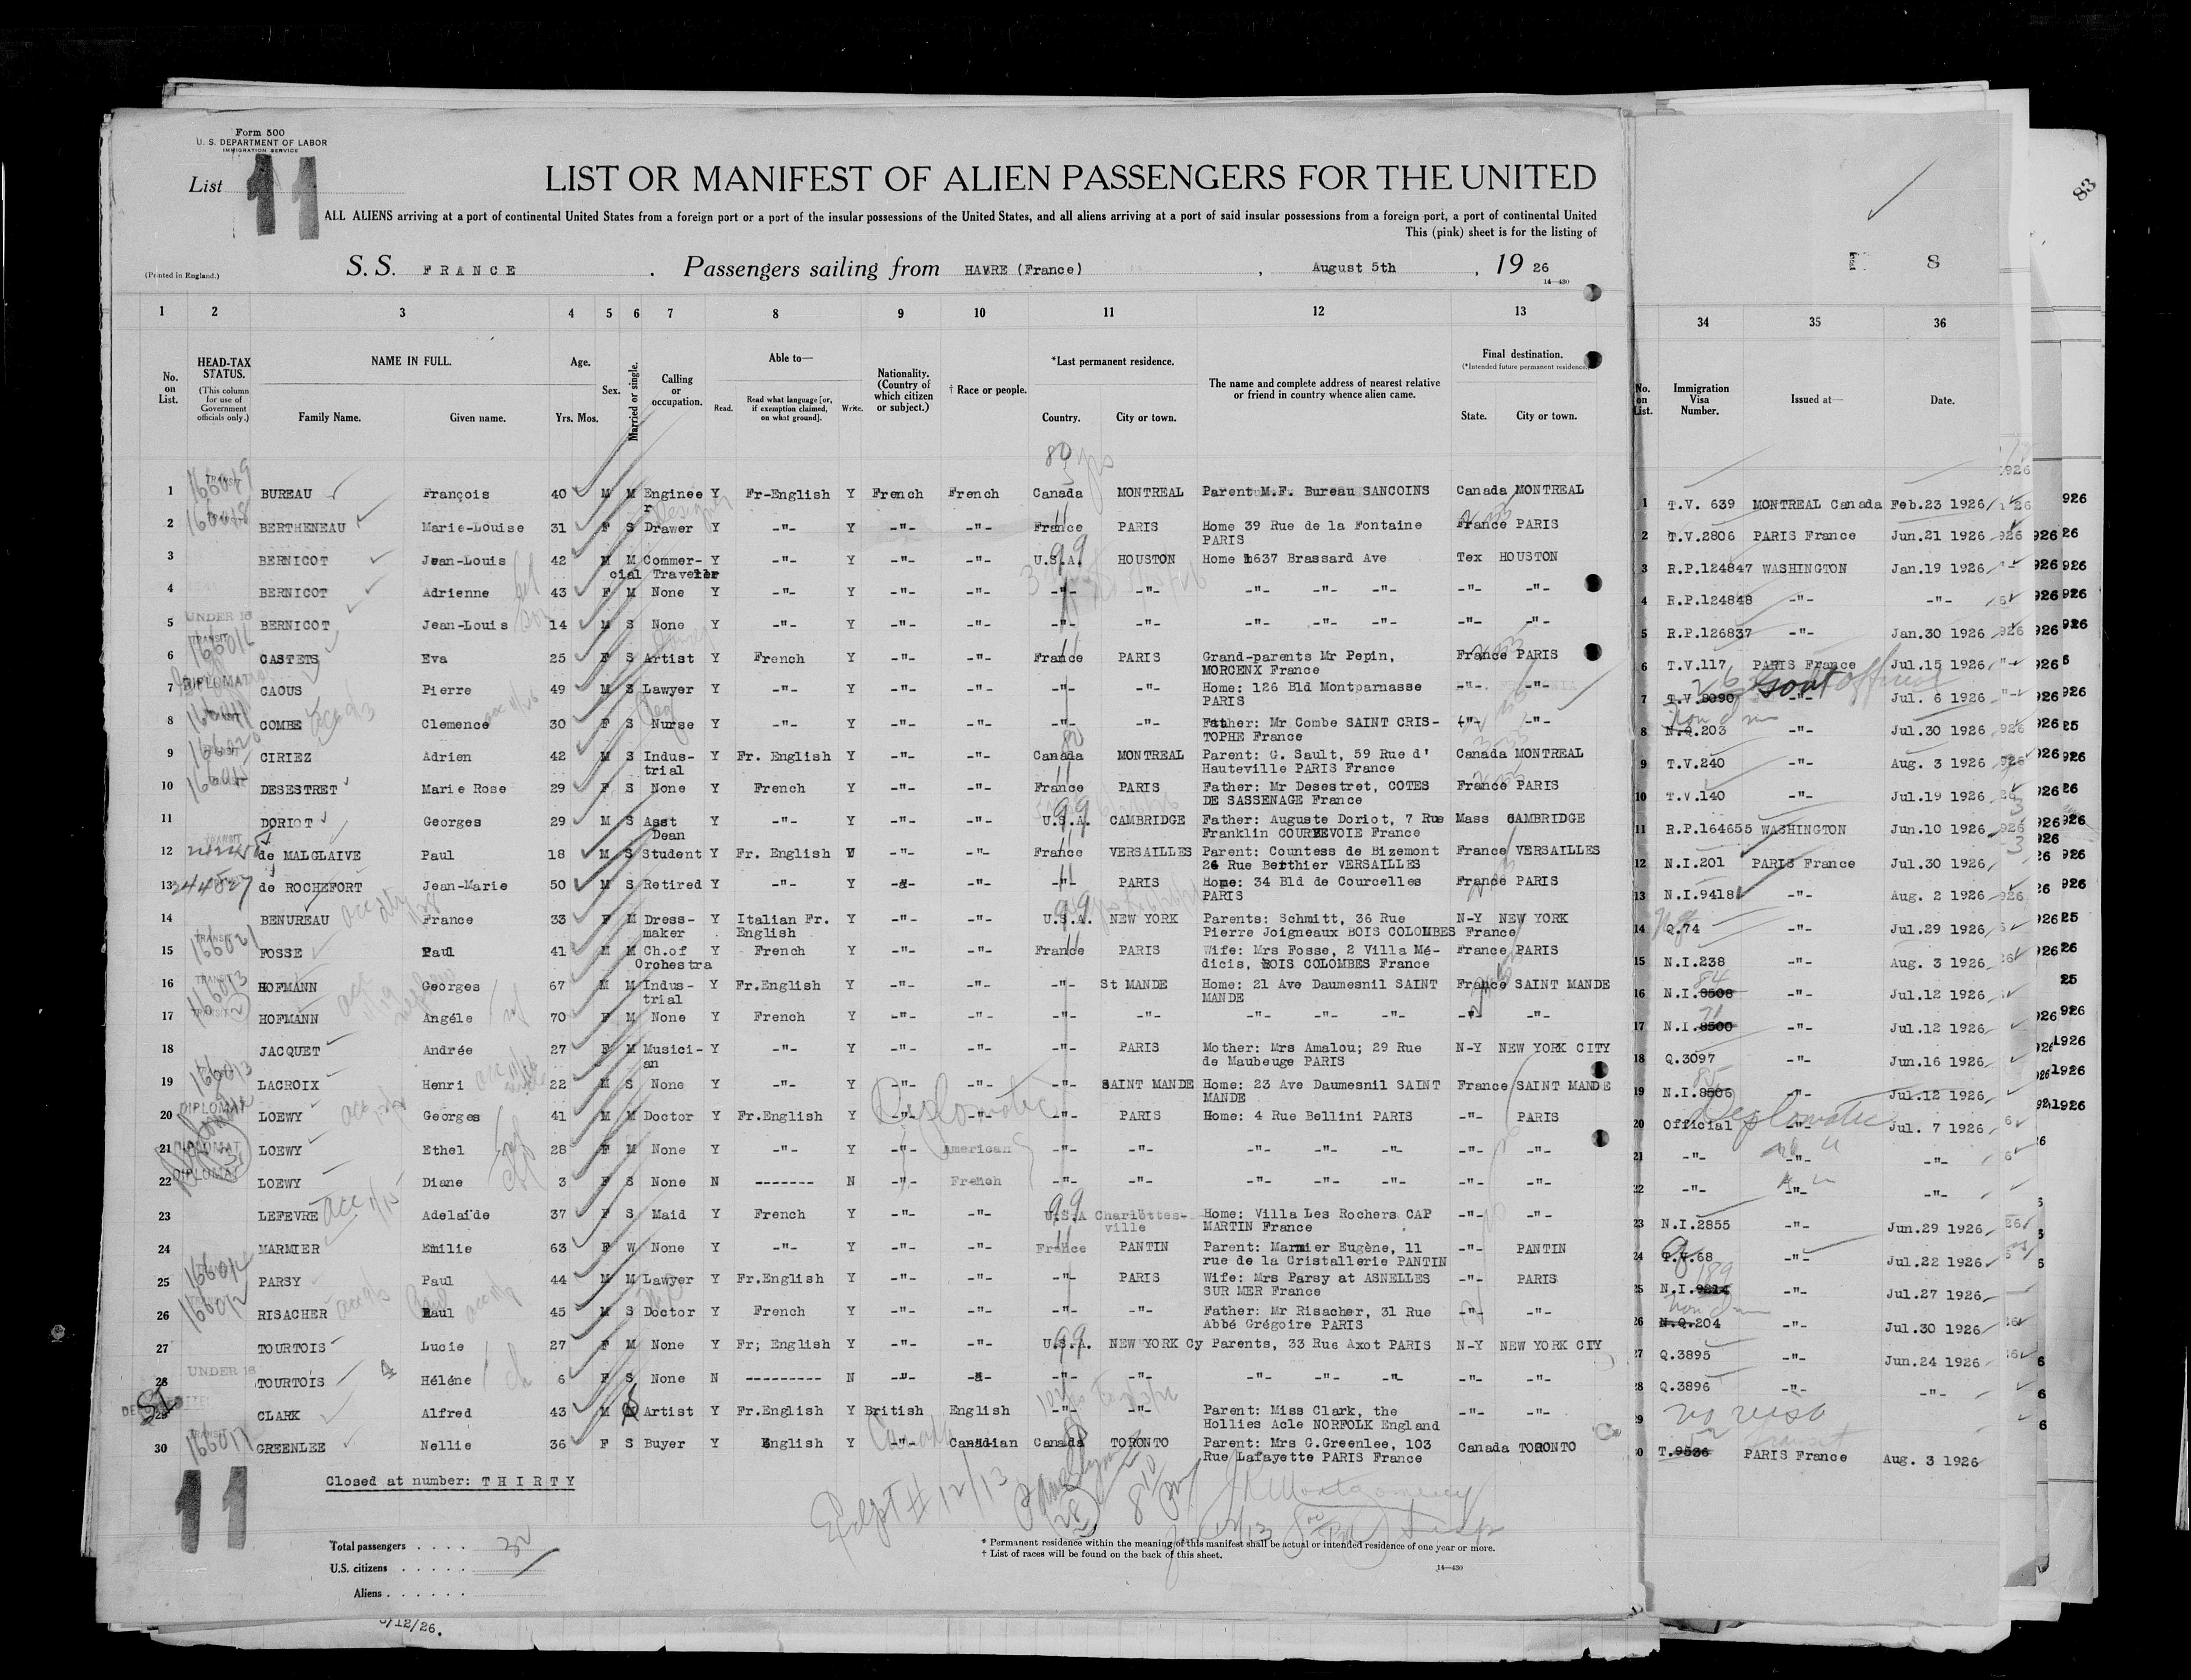 Form 500
U. S. DEPARTMENT OF LABOR
IMMIGRATION SERVICE
List 11
LIST OR MANIFEST OF ALIEN PASSENGERS FOR THE UNITED
ALL ALIENS arriving at a port of continental United States from a foreign port or a port of the insular possessions of the United States, and all aliens arriving at a port of said insular possessions from a foreign port, a port of continental United
This (pink) sheet is for the listing of
(Printed in England.)
S. S. FRANCE . Passengers sailing from HAVRE (France) , August 5th , 19 26
14—430
8
83
1 2 3 4 5 6 7 8 9 10 11 12 13 34 35 36
No. on List.
HEAD-TAX STATUS.
(This column for use of Government officials only.)
NAME IN FULL.
Family Name. Given name.
Age.
Yrs. Mos.
Sex.
Married or single.
Calling or occupation.
Able to—
Read.
Read what language [or, if exemption claimed, on what ground].
Write.
Nationality. (Country of which citizen or subject.)
† Race or people.
*Last permanent residence.
Country. City or town.
The name and complete address of nearest relative or friend in country whence alien came.
Final destination.
(*Intended future permanent residence)
State. City or town.
No. on List.
Immigration Visa Number.
Issued at—
Date.
1 BUREAU François 40 M M Enginee Y Fr-English Y French French Canada MONTREAL Parent M.F. Bureau SANCOINS Canada MONTREAL 1 T.V. 639 MONTREAL Canada Feb.23 1926
r
2 BERTHENEAU Marie-Louise 31 F S Drawer Y -"- Y -"- -"- France PARIS Home 39 Rue de la Fontaine France PARIS 2 T.V.2806 PARIS France Jun.21 1926
PARIS
3 BERNICOT Jean-Louis 42 M M Commer- Y -"- Y -"- -"- U.S.A. HOUSTON Home 1637 Brassard Ave Tex HOUSTON 3 R.P.124847 WASHINGTON Jan.19 1926
cial Traveler
4 BERNICOT Adrienne 43 F M None Y -"- Y -"- -"- -"- -"- -"- -"- -"- -"- -"- 4 R.P.124848 -"- -"-
UNDER 16
5 BERNICOT Jean-Louis 14 M S None Y -"- Y -"- -"- -"- -"- -"- -"- -"- -"- -"- 5 R.P.126837 -"- Jan.30 1926
TRANSIT
6 CASTETS Eva 25 F S Artist Y French Y -"- -"- France PARIS Grand-parents Mr Pepin, France PARIS 6 T.V.117 PARIS France Jul.15 1926
MORCENX France
DIPLOMAT
7 CAOUS Pierre 49 M S Lawyer Y -"- Y -"- -"- -"- -"- Home: 126 Bld Montparnasse -"- -"- 7 T.V.8090 -"- Jul. 6 1926
Govt official
PARIS
8 COMBE Clemence 30 F S Nurse Y -"- Y -"- -"- -"- -"- Father: Mr Combe SAINT CRIS- -"- -"- 8 N.Q.203 -"- Jul.30 1926
TOPHE France
9 CIRIEZ Adrien 42 M S Indus- Y Fr. English Y -"- -"- Canada MONTREAL Parent: G. Sault, 59 Rue d' Canada MONTREAL 9 T.V.240 -"- Aug. 3 1926
trial Hauteville PARIS France
10 DESESTRET Marie Rose 29 F S None Y French Y -"- -"- France PARIS Father: Mr Desestret, COTES France PARIS 10 T.V.140 -"- Jul.19 1926
DE SASSENAGE France
11 DORIOT Georges 29 M S Asst Y -"- Y -"- -"- U.S.A. CAMBRIDGE Father: Auguste Doriot, 7 Rue Mass CAMBRIDGE 11 R.P.164655 WASHINGTON Jun.10 1926
Dean Franklin COURBEVOIE France
12 de MALGLAIVE Paul 18 M S Student Y Fr. English Y -"- -"- France VERSAILLES Parent: Countess de Bizemont France VERSAILLES 12 N.I.201 PARIS France Jul.30 1926
26 Rue Berthier VERSAILLES
13 de ROCHEFORT Jean-Marie 50 M S Retired Y -"- Y -"- -"- -"- PARIS Home: 34 Bld de Courcelles France PARIS 13 N.I.9418 -"- Aug. 2 1926
PARIS
14 BENUREAU France 33 F M Dress- Y Italian Fr. Y -"- -"- U.S.A. NEW YORK Parents: Schmitt, 36 Rue N-Y NEW YORK 14 Q.74 -"- Jul.29 1926
maker English Pierre Joigneaux BOIS COLOMBES France
15 FOSSE Paul 41 M M Ch.of Y French Y -"- -"- France PARIS Wife: Mrs Fosse, 2 Villa Mé- France PARIS 15 N.I.238 -"- Aug. 3 1926
Orchestra dicis, BOIS COLOMBES France
16 HOFMANN Georges 67 M M Indus- Y Fr.English Y -"- -"- -"- St MANDE Home: 21 Ave Daumesnil SAINT France SAINT MANDE 16 N.I.8508 -"- Jul.12 1926
trial MANDE
17 HOFMANN Angéle 70 F M None Y French Y -"- -"- -"- -"- -"- -"- -"- -"- -"- -"- 17 N.I.8500 -"- Jul.12 1926
18 JACQUET Andrée 27 F M Musici- Y -"- Y -"- -"- -"- PARIS Mother: Mrs Amalou; 29 Rue N-Y NEW YORK CITY 18 Q.3097 -"- Jun.16 1926
an de Maubeuge PARIS
19 LACROIX Henri 22 M S None Y -"- Y -"- -"- -"- SAINT MANDE Home: 23 Ave Daumesnil SAINT France SAINT MANDE 19 N.I.8506 -"- Jul.12 1926
MANDE
DIPLOMAT Diplomatic Diplomatic
20 LOEWY Georges 41 M M Doctor Y Fr.English Y -"- -"- -"- PARIS Home: 4 Rue Bellini PARIS -"- PARIS 20 Official -"- Jul. 7 1926
DIPLOMAT
21 LOEWY Ethel 28 F M None Y -"- Y -"- American -"- -"- -"- -"- -"- -"- -"- -"- 21 -"- -"- -"-
DIPLOMAT
22 LOEWY Diane 3 F S None N ------- N -"- French -"- -"- -"- -"- -"- -"- -"- -"- 22 -"- -"- -"-
23 LEFEVRE Adelaïde 37 F S Maid Y French Y -"- -"- U.S.A Charlottes- Home: Villa Les Rochers CAP -"- -"- 23 N.I.2855 -"- Jun.29 1926
ville MARTIN France
24 MARMIER Emilie 63 F W None Y -"- Y -"- -"- France PANTIN Parent: Marmier Eugène, 11 -"- PANTIN 24 T.V.68 -"- Jul.22 1926
rue de la Cristallerie PANTIN
25 PARSY Paul 44 M M Lawyer Y Fr.English Y -"- -"- -"- PARIS Wife: Mrs Parsy at ASNELLES -"- PARIS 25 N.I.9214 -"- Jul.27 1926
SUR MER France
26 RISACHER Raul 45 M S Doctor Y French Y -"- -"- -"- -"- Father: Mr Risacher, 31 Rue -"- -"- 26 N.Q.204 -"- Jul.30 1926
Abbé Grégoire PARIS
27 TOURTOIS Lucie 27 F M None Y Fr; English Y -"- -"- U.S.A. NEW YORK Cy Parents, 33 Rue Axot PARIS N-Y NEW YORK CIY 27 Q.3895 -"- Jun.24 1926
UNDER 16
28 TOURTOIS Héléne 6 F S None N --------- N -"- -"- -"- -"- -"- -"- -"- -"- -"- -"- 28 Q.3896 -"- -"-
29 CLARK Alfred 43 M Artist Y Fr.English Y British English -"- -"- Parent: Miss Clark, the -"- -"- 29 no visa
Hollies Acle NORFOLK England
TRANSIT
30 GREENLEE Nellie 36 F S Buyer Y English Y -"- Canadian Canada TORONTO Parent: Mrs G.Greenlee, 103 Canada TORONTO 30 T.9536 PARIS France Aug. 3 1926
Rue Lafayette PARIS France
Closed at number: THIRTY
11
Total passengers . . . .
U.S. citizens . . . . .
Aliens . . . . . .
* Permanent residence within the meaning of this manifest shall be actual or intended residence of one year or more.
† List of races will be found on the back of this sheet.
14—430
/12/26.